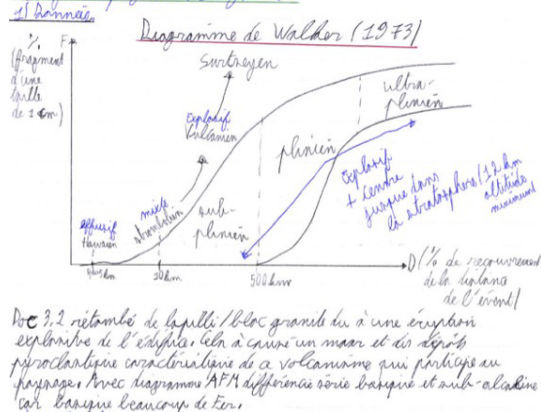 1) Données
Diagramme de Walker (1973)
% F
(fragment
d'une
taille
de 1cm)
Surtseyen
ultra-
plinien
explosif
Vulcanien
plinien
explosif
+ cendre
jusque dans
la stratosphère (12 km
altitude
minimum
effusif
Hawaien
mixte
strombolien
sub-
plinien
30km
500km
D (% de recouvrement
de la distance
de l'évent)
Doc 3.2 rétombé de lapilli/bloc granite du à une éruption
explosive de l'édifice. Cela à causé un maar et dis dépôt
pyroclastique caractéristique de ce volcanisme qui participe au
paysage. Avec diagramme AFM différencie série basique et sub-alcaline
car basique beaucoup de Fer.